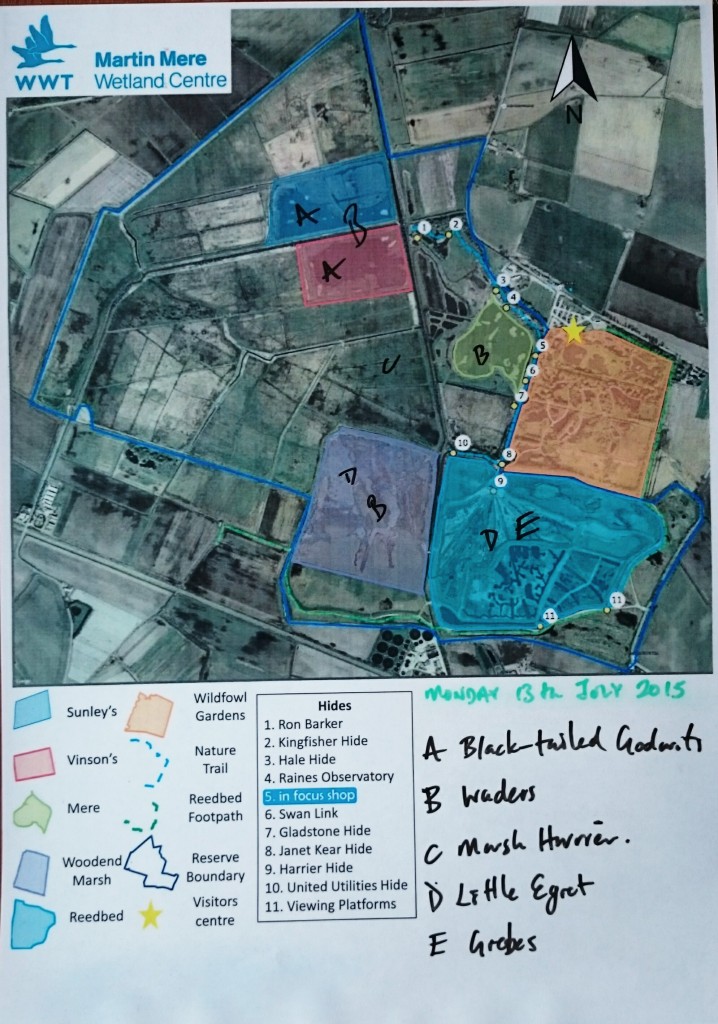 WWT
Martin Mere
Wetland Centre
N
A
B
A
1
2
3
4
B
5
6
7
C
10
8
9
D
B
D E
11
11
MONDAY 13th JULY 2015
Sunley's
Vinson's
Mere
Woodend
Marsh
Reedbed
Wildfowl
Gardens
Nature
Trail
Reedbed
Footpath
Reserve
Boundary
Visitors
centre
Hides
1. Ron Barker
2. Kingfisher Hide
3. Hale Hide
4. Raines Observatory
5. in focus shop
6. Swan Link
7. Gladstone Hide
8. Janet Kear Hide
9. Harrier Hide
10. United Utilities Hide
11. Viewing Platforms
A Black-tailed Godwits
B Waders
C Marsh Harrier.
D Little Egret
E Grebes